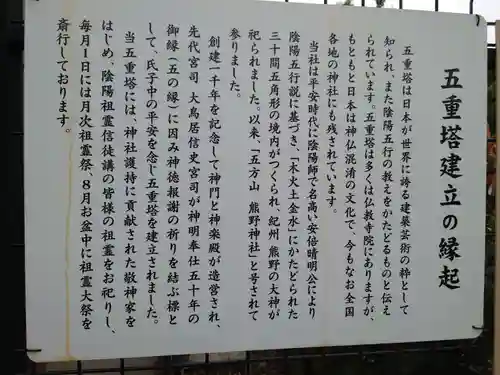 五重塔建立の縁起
五重塔は日本が世界に誇る建築芸術の粋として
知られ、また陰陽五行の教えをかたどるものと伝え
られています。五重塔は多くは仏教寺院にありますが、
もともと日本は神仏混淆の文化で、今もなお全国
各地の神社にも残されています。
当社は平安時代に陰陽師で名高い安倍晴明公により
陰陽五行説に基づき、「木火土金水」にかたどられた
三十間五角形の境内がつくられ紀州 熊野の大神が
祀られました。以来、「五方山 熊野神社」と号されて
参りました。
創建一千年を記念して神門と神楽殿が造営され、
先代宮司 大鳥居信史宮司が神明奉仕五十年の
御縁(五の縁)に因み神徳報謝の祈りを結ぶ標と
して、氏子中の平安を念じ五重塔を建立されました。
当五重塔には、神社護持に貢献された敬神家を
はじめ、陰陽祖霊信徒講の皆様の祖霊をお祀りし、
毎月1日には月次祖霊祭、8月お盆中に祖霊大祭を
斎行しております。